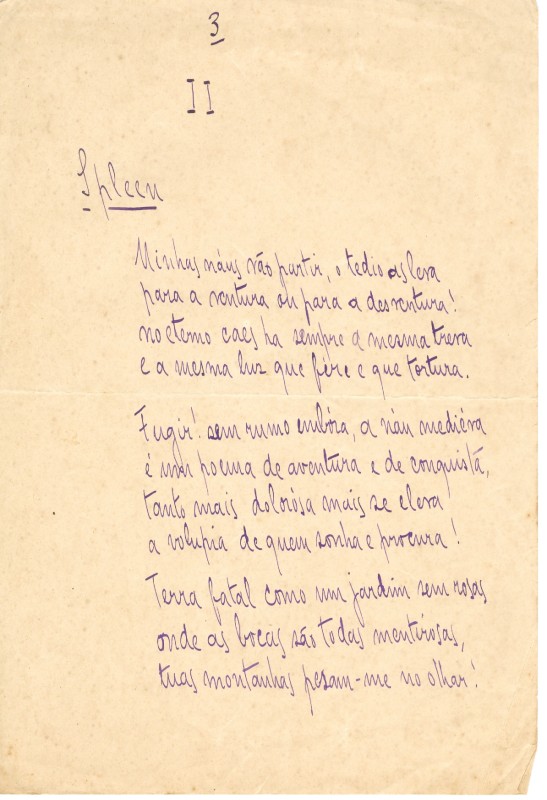 3
II
Spleen
Minhas náus vão partir, o tedio as leva
para a ventura ou para a desventura!
no eterno caes ha sempre a mesma treva
e a mesma luz que fére e que tortura.
Fugir! sem rumo embóra, a náu mediéva
é um poema de aventura e de conquista,
tanto mais dolorósa mais se eleva
a volupia de quem sonha e procura!
Terra fatal como um jardim sem rosas
onde as bocas são todas mentirósas,
tuas montanhas pezam-me no olhar!